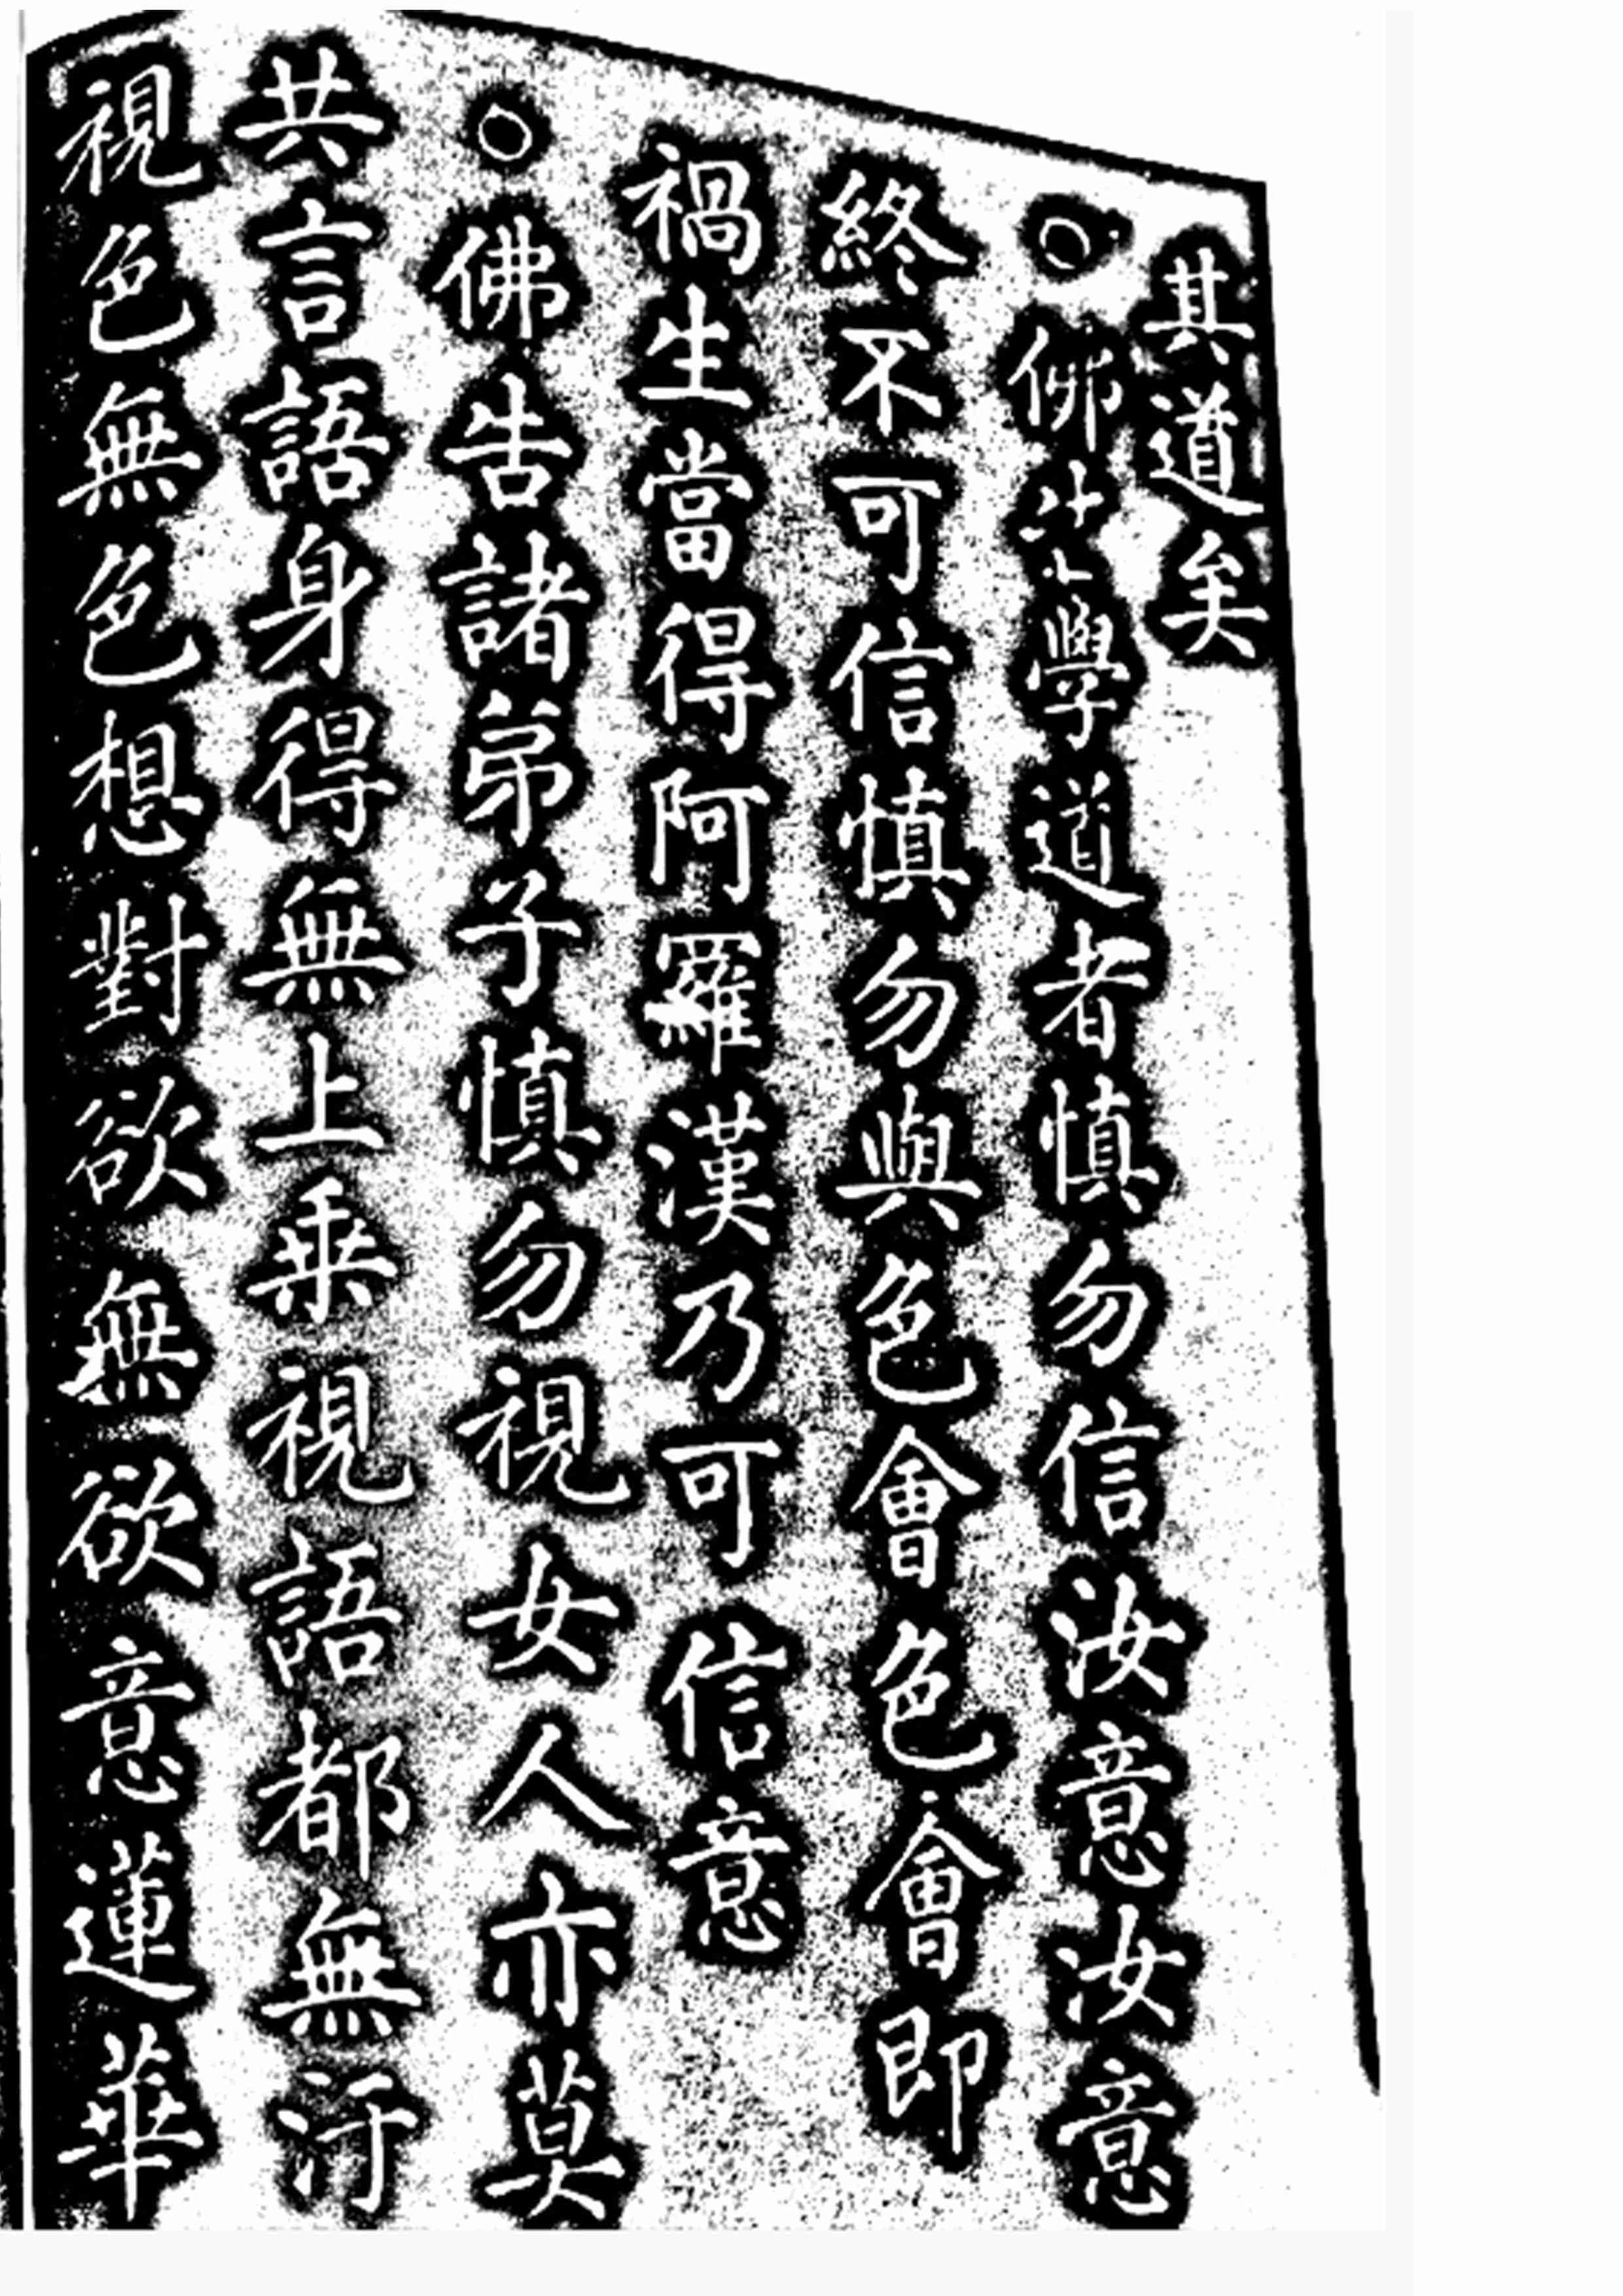 其道矣
○佛學道者慎勿信汝意汝意
終不可信慎勿與色會色會即
禍生當得阿羅漢乃可信意
○佛告諸弟子慎勿視女人亦莫
共言語身得無上乘視語都無汙
視色無色想對欲無欲意蓮華